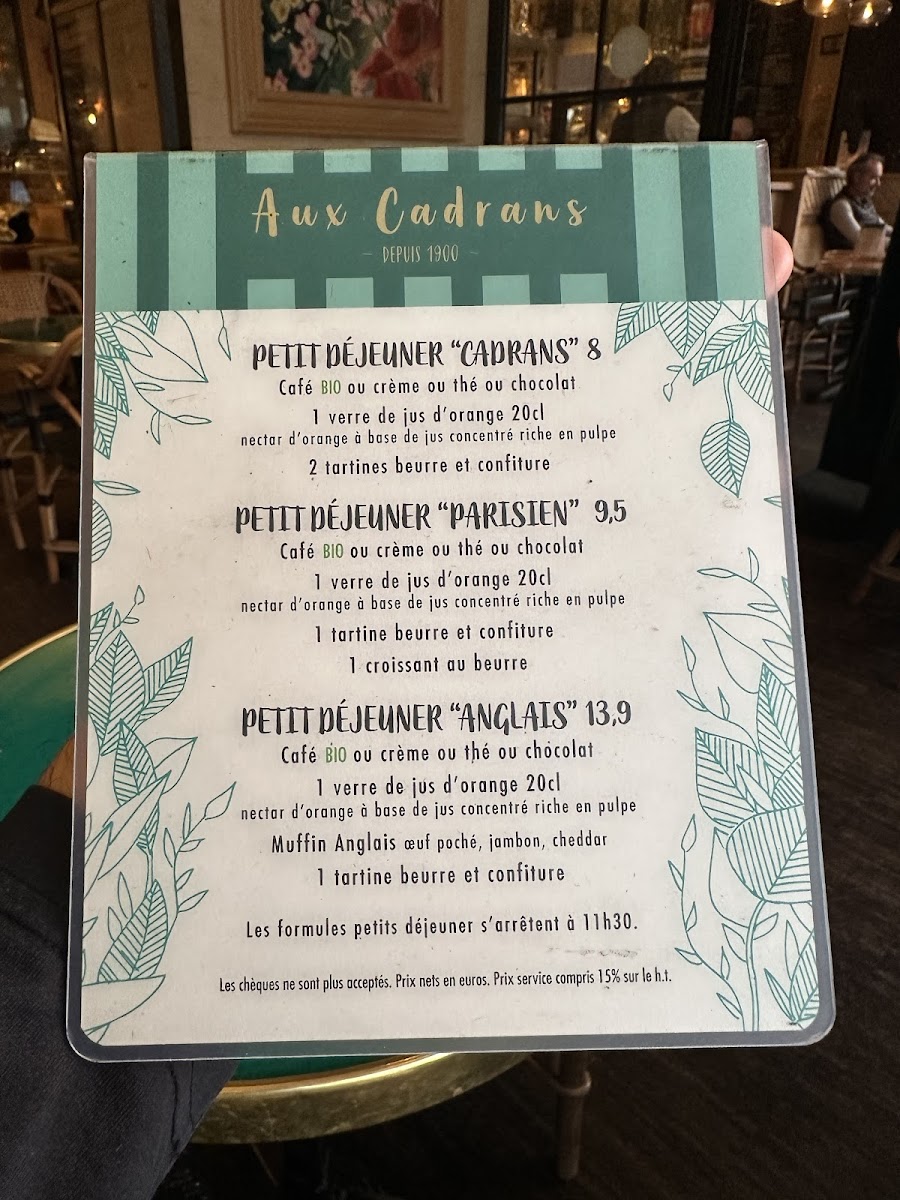 Aux Cadrans
- DEPUIS 1900 -
PETIT DÉJEUNER “CADRANS” 8
Café BIO ou crème ou thé ou chocolat
1 verre de jus d’orange 20cl
nectar d’orange à base de jus concentré riche en pulpe
2 tartines beurre et confiture
PETIT DÉJEUNER “PARISIEN” 9,5
Café BIO ou crème ou thé ou chocolat
1 verre de jus d’orange 20cl
nectar d’orange à base de jus concentré riche en pulpe
1 tartine beurre et confiture
1 croissant au beurre
PETIT DÉJEUNER “ANGLAIS” 13,9
Café BIO ou crème ou thé ou chocolat
1 verre de jus d’orange 20cl
nectar d’orange à base de jus concentré riche en pulpe
Muffin Anglais œuf poché, jambon, cheddar
1 tartine beurre et confiture
Les formules petits déjeuner s’arrêtent à 11h30.
Les chèques ne sont plus acceptés. Prix nets en euros. Prix service compris 15% sur le h.t.